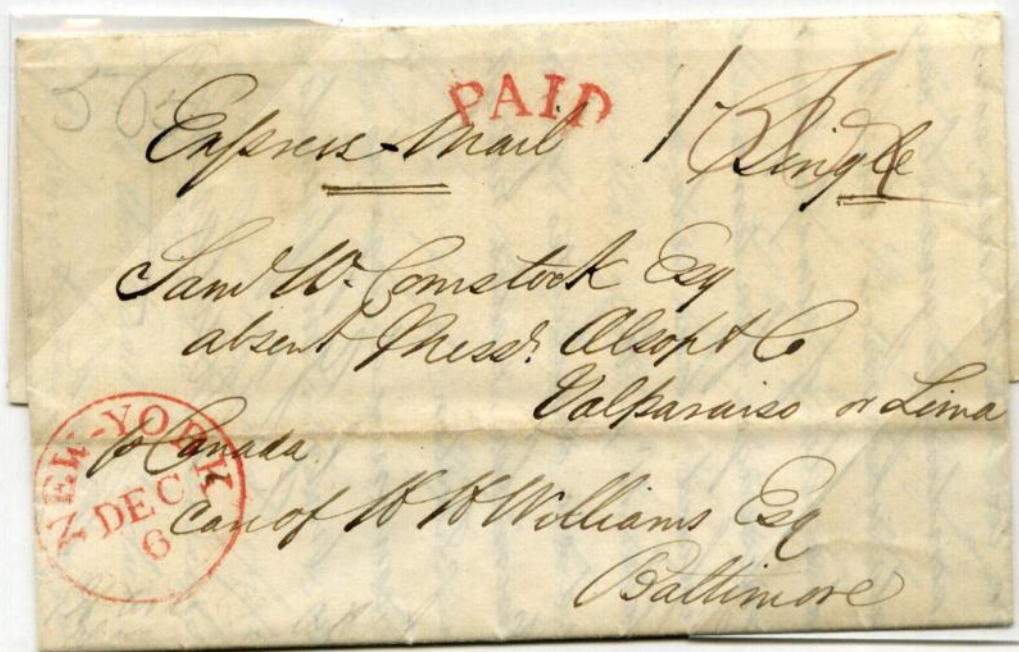 PAID
Express Mail
Single
Saml W. Comstock Esq
absent Messrs. Alsop & Co
Valparaiso or Lima
p Canada
care of W H Williams Esq
Baltimore
NEW-YORK
DEC
6